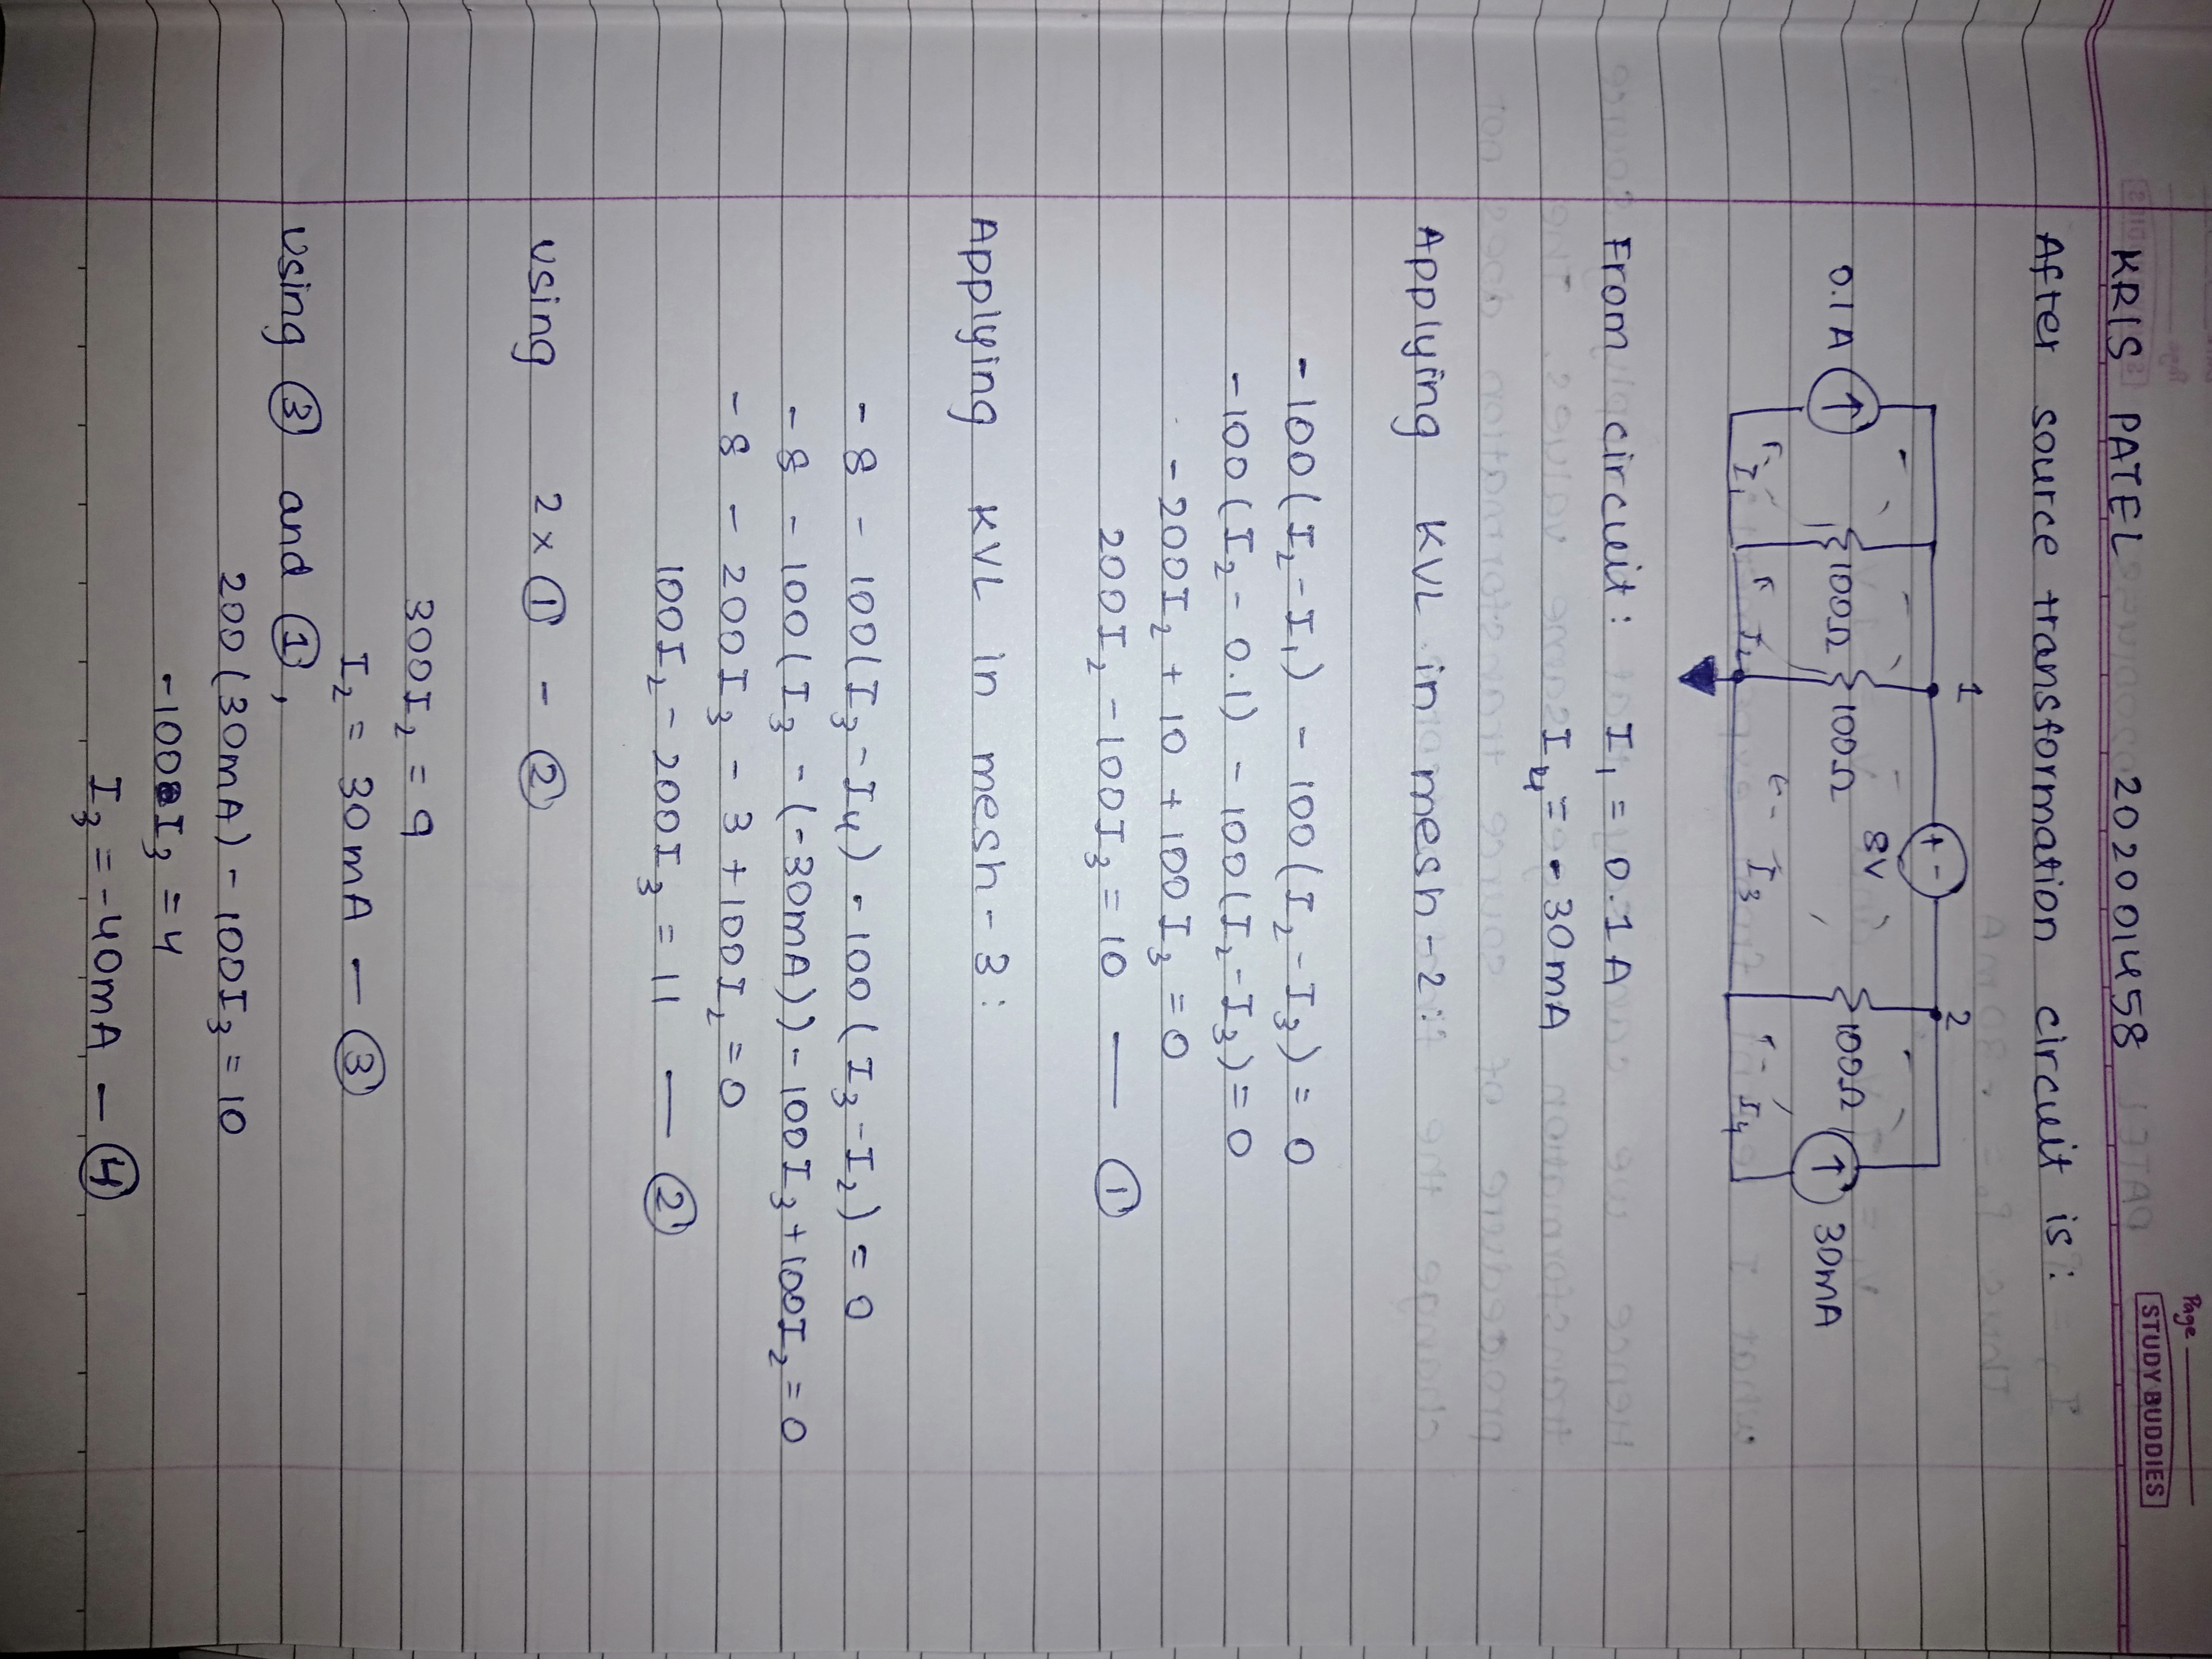 Page
STUDY BUDDIES
KRIS PATEL 202001458
After source transformation circuit is:
1 2
+ -
8V
0.1A 100Ω 100Ω 100Ω 30mA
I₁ I₂ I₃ I₄
From circuit: I₁ = 0.1A
I₄ = -30mA
Applying KVL in mesh-2:
-100(I₂-I₁) - 100(I₂-I₃) = 0
-100(I₂-0.1) - 100(I₂-I₃) = 0
-200I₂ + 10 + 100I₃ = 0
200I₂ - 100I₃ = 10 — ①
Applying KVL in mesh-3:
-8 - 100(I₃-I₄) - 100(I₃-I₂) = 0
-8 - 100(I₃ - (-30mA)) - 100I₃ + 100I₂ = 0
-8 - 200I₃ - 3 + 100I₂ = 0
100I₂ - 200I₃ = 11 — ②
using 2x① - ②
300I₂ = 9
I₂ = 30mA — ③
using ③ and ①,
200(30mA) - 100I₃ = 10
-100I₃ = 4
I₃ = -40mA — ④